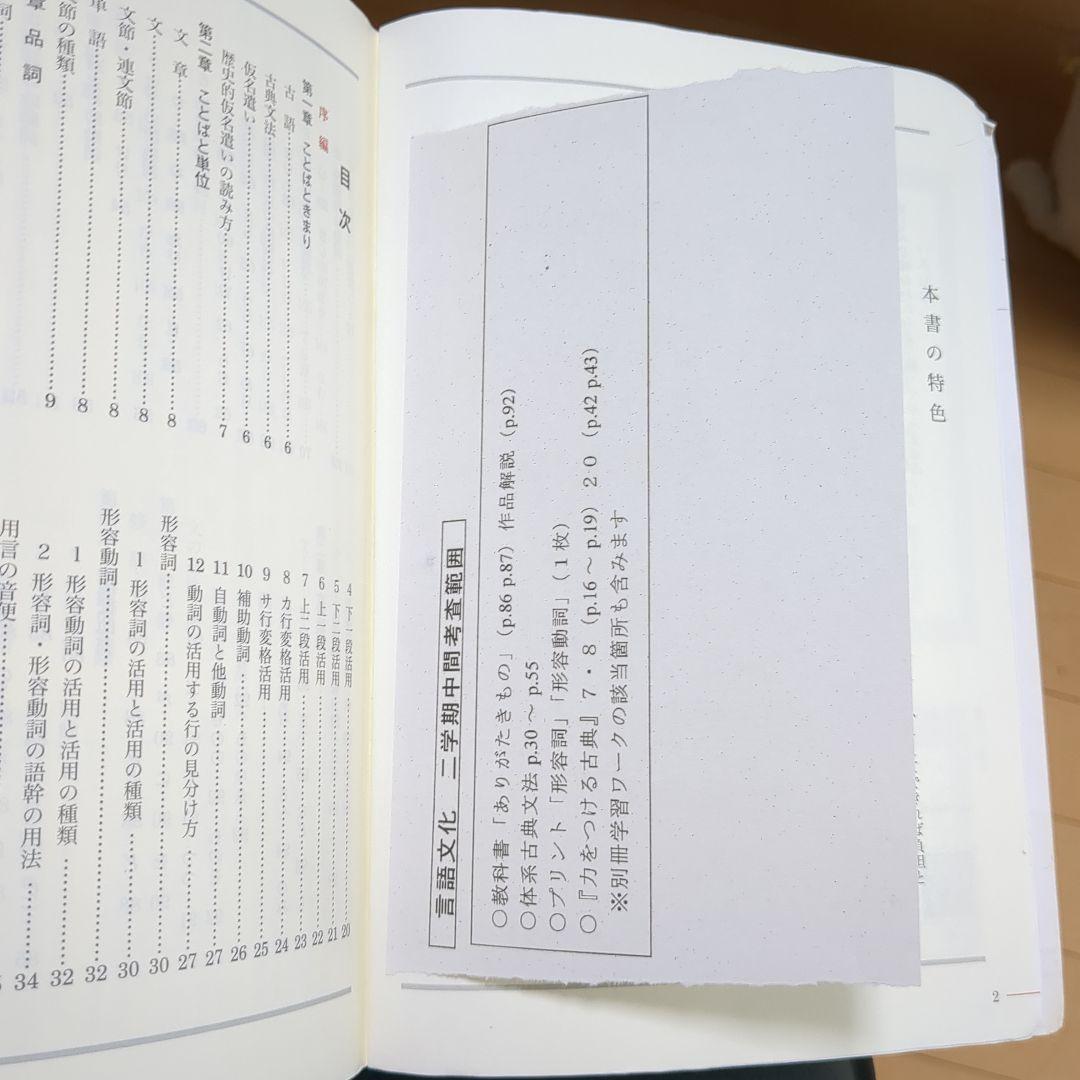 本書の特色
2
言語文化　二学期中間考査範囲
○教科書「ありがたきもの」（p.86 p.87）作品解説（p.92）
○体系古典文法 p.30～p.55
○プリント「形容詞」「形容動詞」（1枚）
○『力をつける古典』7・8（p.16～p.19）20（p.42 p.43）
※別冊学習ワークの該当箇所も含みます
目次
序編
第一章　ことばときまり
古語……6
古典文法……6
仮名遣い……6
歴史的仮名遣いの読み方……7
第二章　ことばと単位
文章……8
文……8
文節・連文節……8
単語……8
文節の種類……9
章 品詞
4 下一段活用……20
5 下二段活用……21
6 上一段活用……22
7 上二段活用……23
8 カ行変格活用……24
9 サ行変格活用……25
10 補助動詞……26
11 自動詞と他動詞……27
12 動詞の活用する行の見分け方……27
形容詞……30
1 形容詞の活用と活用の種類……30
形容動詞……32
1 形容動詞の活用と活用の種類……32
2 形容詞・形容動詞の語幹の用法……34
用言の音便